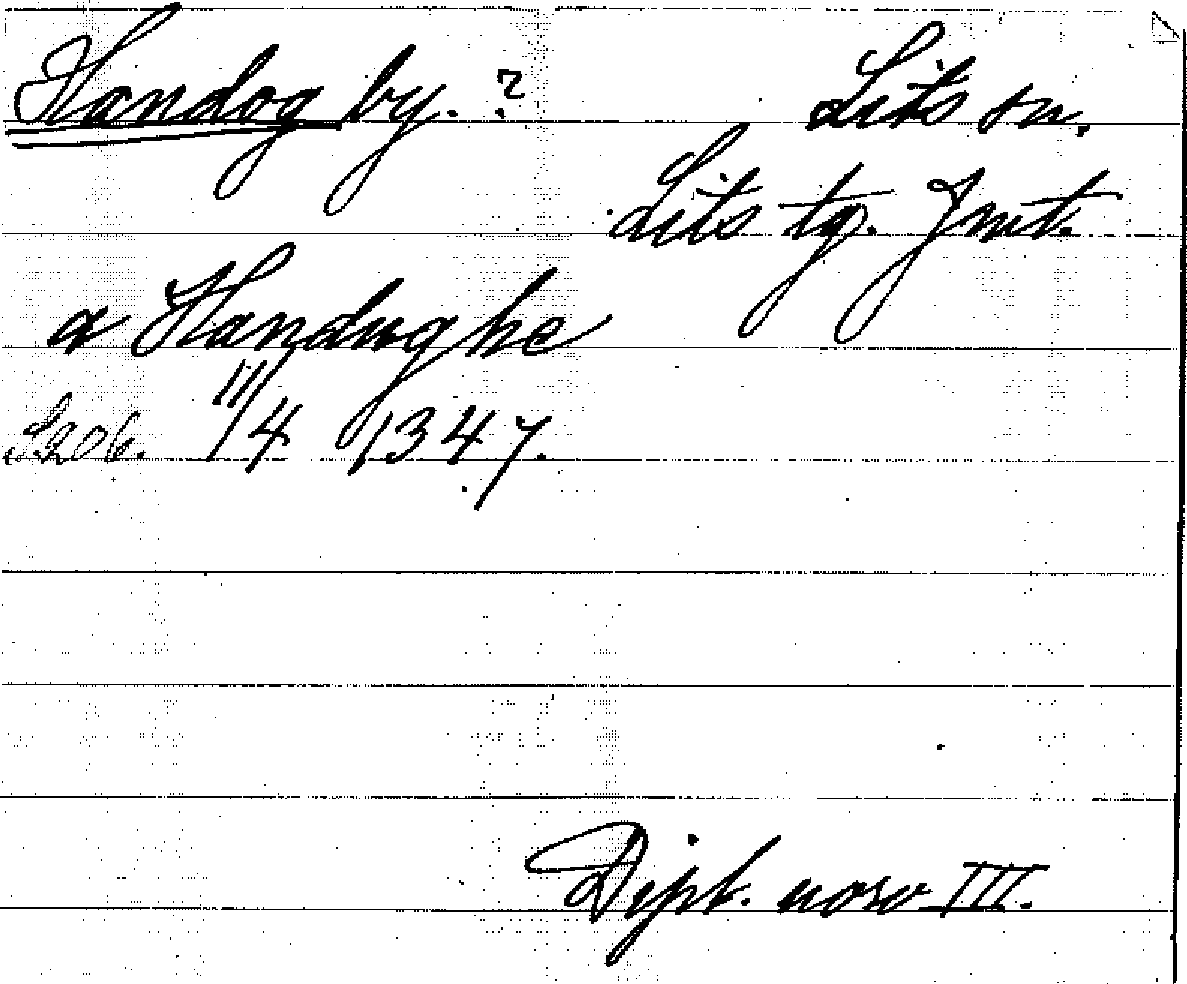 Handog by. ? Lits sn.
Lits tg. Jmt.
a Handughe
S. 206. 11/4 1347.
Dipl. norv III.